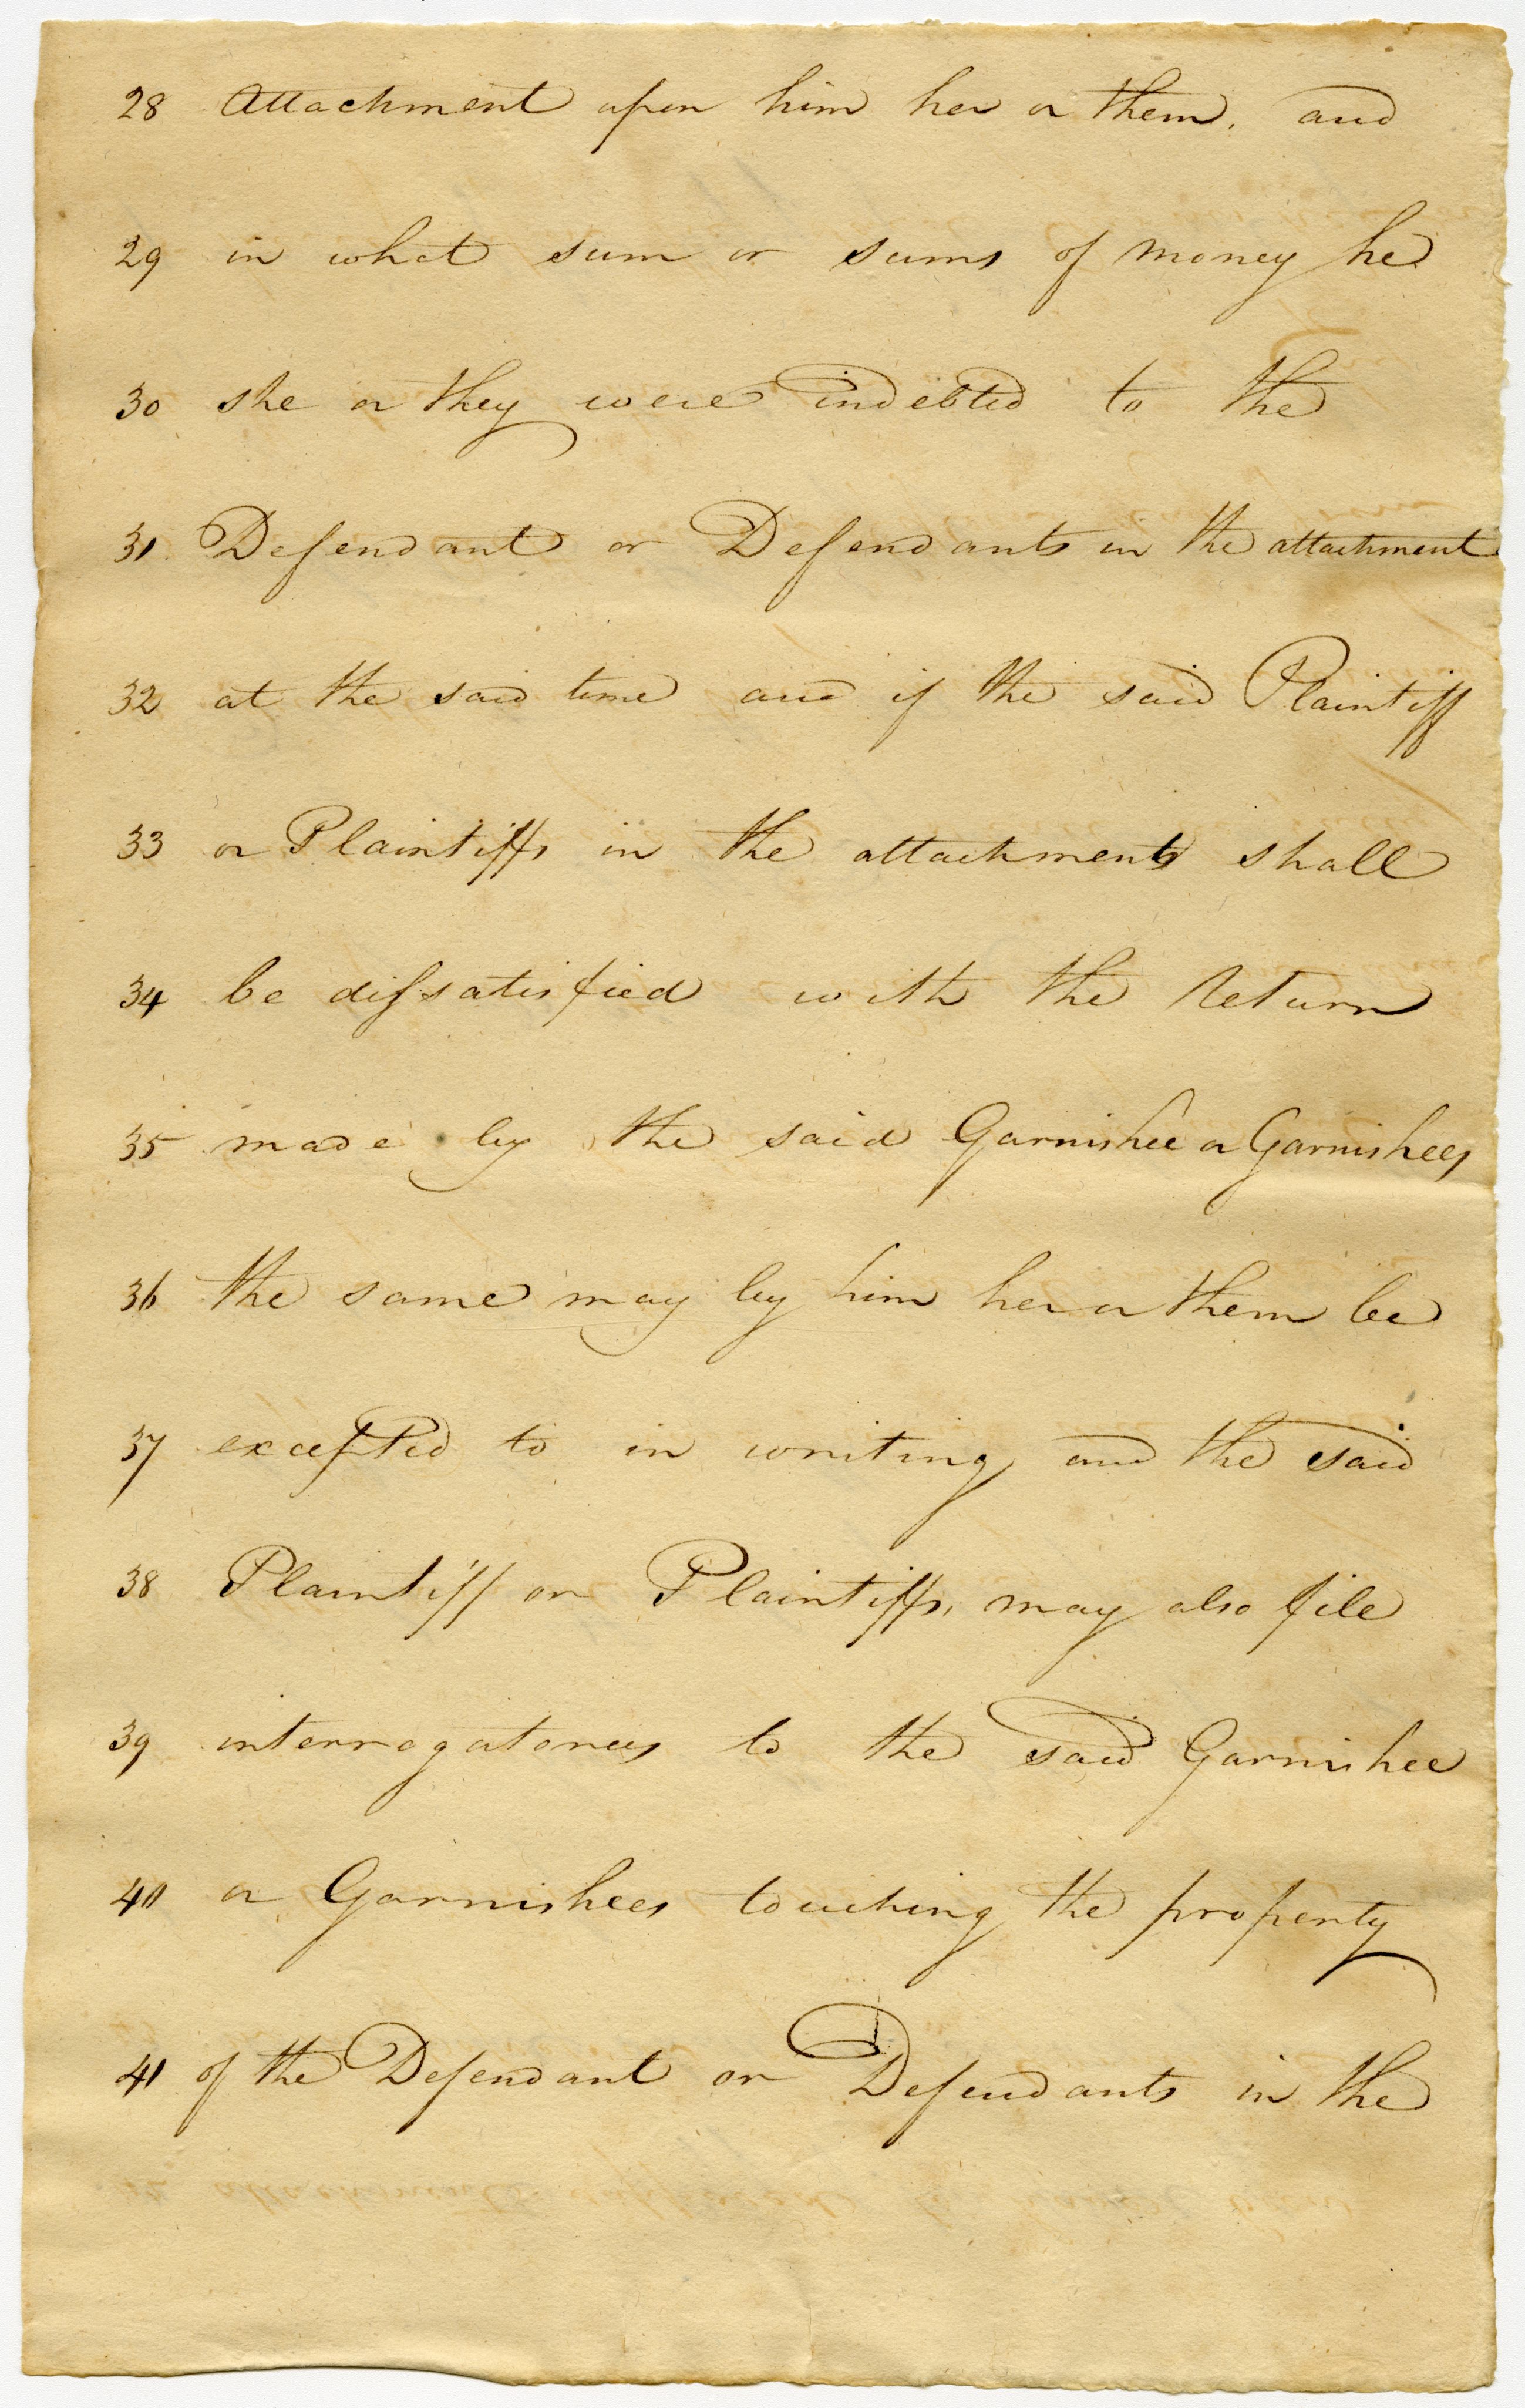 28 Attachment upon him her or them. and
29 in what sum or sums of money he
30 she or they were indebted to the
31 Defendant or Defendants in the attachment
32 at the said time and if the said Plaintiff
33 or Plaintiffs in the attachment shall
34 be dissatisfied with the return
35 made by the said Garnishee or Garnishees
36 the same may by him her or them be
37 excepted to in writing and the said
38 Plaintiff or Plaintiffs, may also file
39 interrogatories to the said Garnishee
40 or Garnishees touching the property
41 of the Defendant or Defendants in the